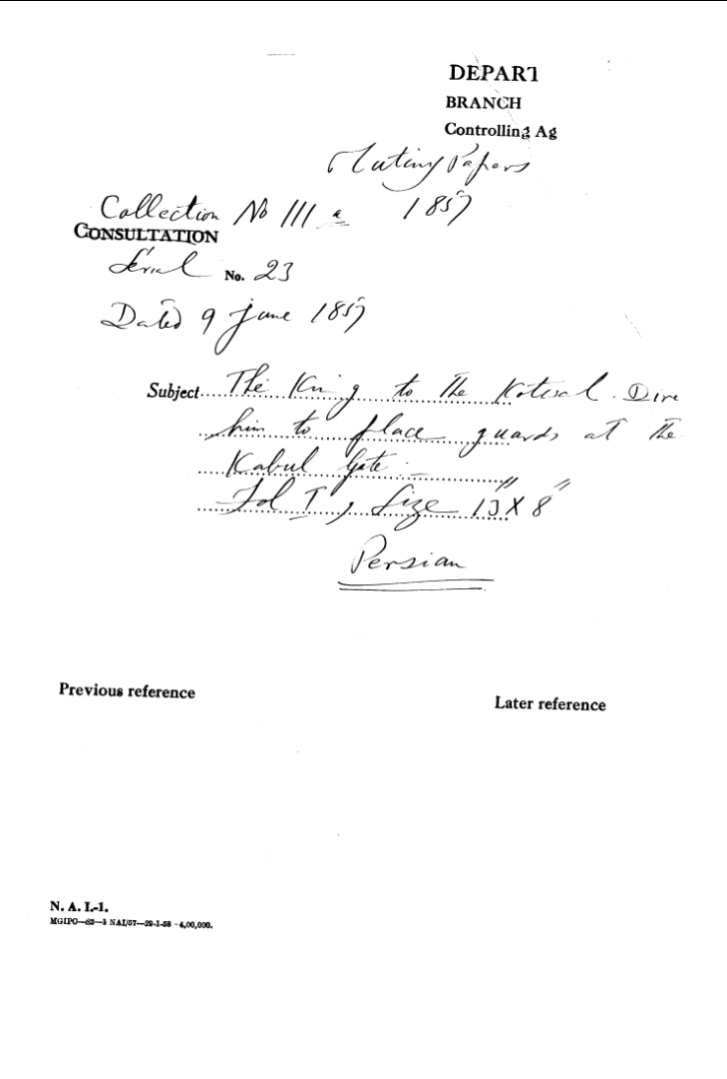 DEPART
BRANCH
Controlling Ag
Mutiny Papers
Collection No III a 1857
CONSULTATION
Serial No. 23
Dated 9 June 1857
Subject The King to the Kotwal. Dire
him to place guards at the
Kabul Gate:—
Fol I, Size 13" X 8"
Persian
Previous reference
Later reference
N. A. I.-1.
MGIPO—S2—3 NAI/57—29-1-58 -4,00,000.